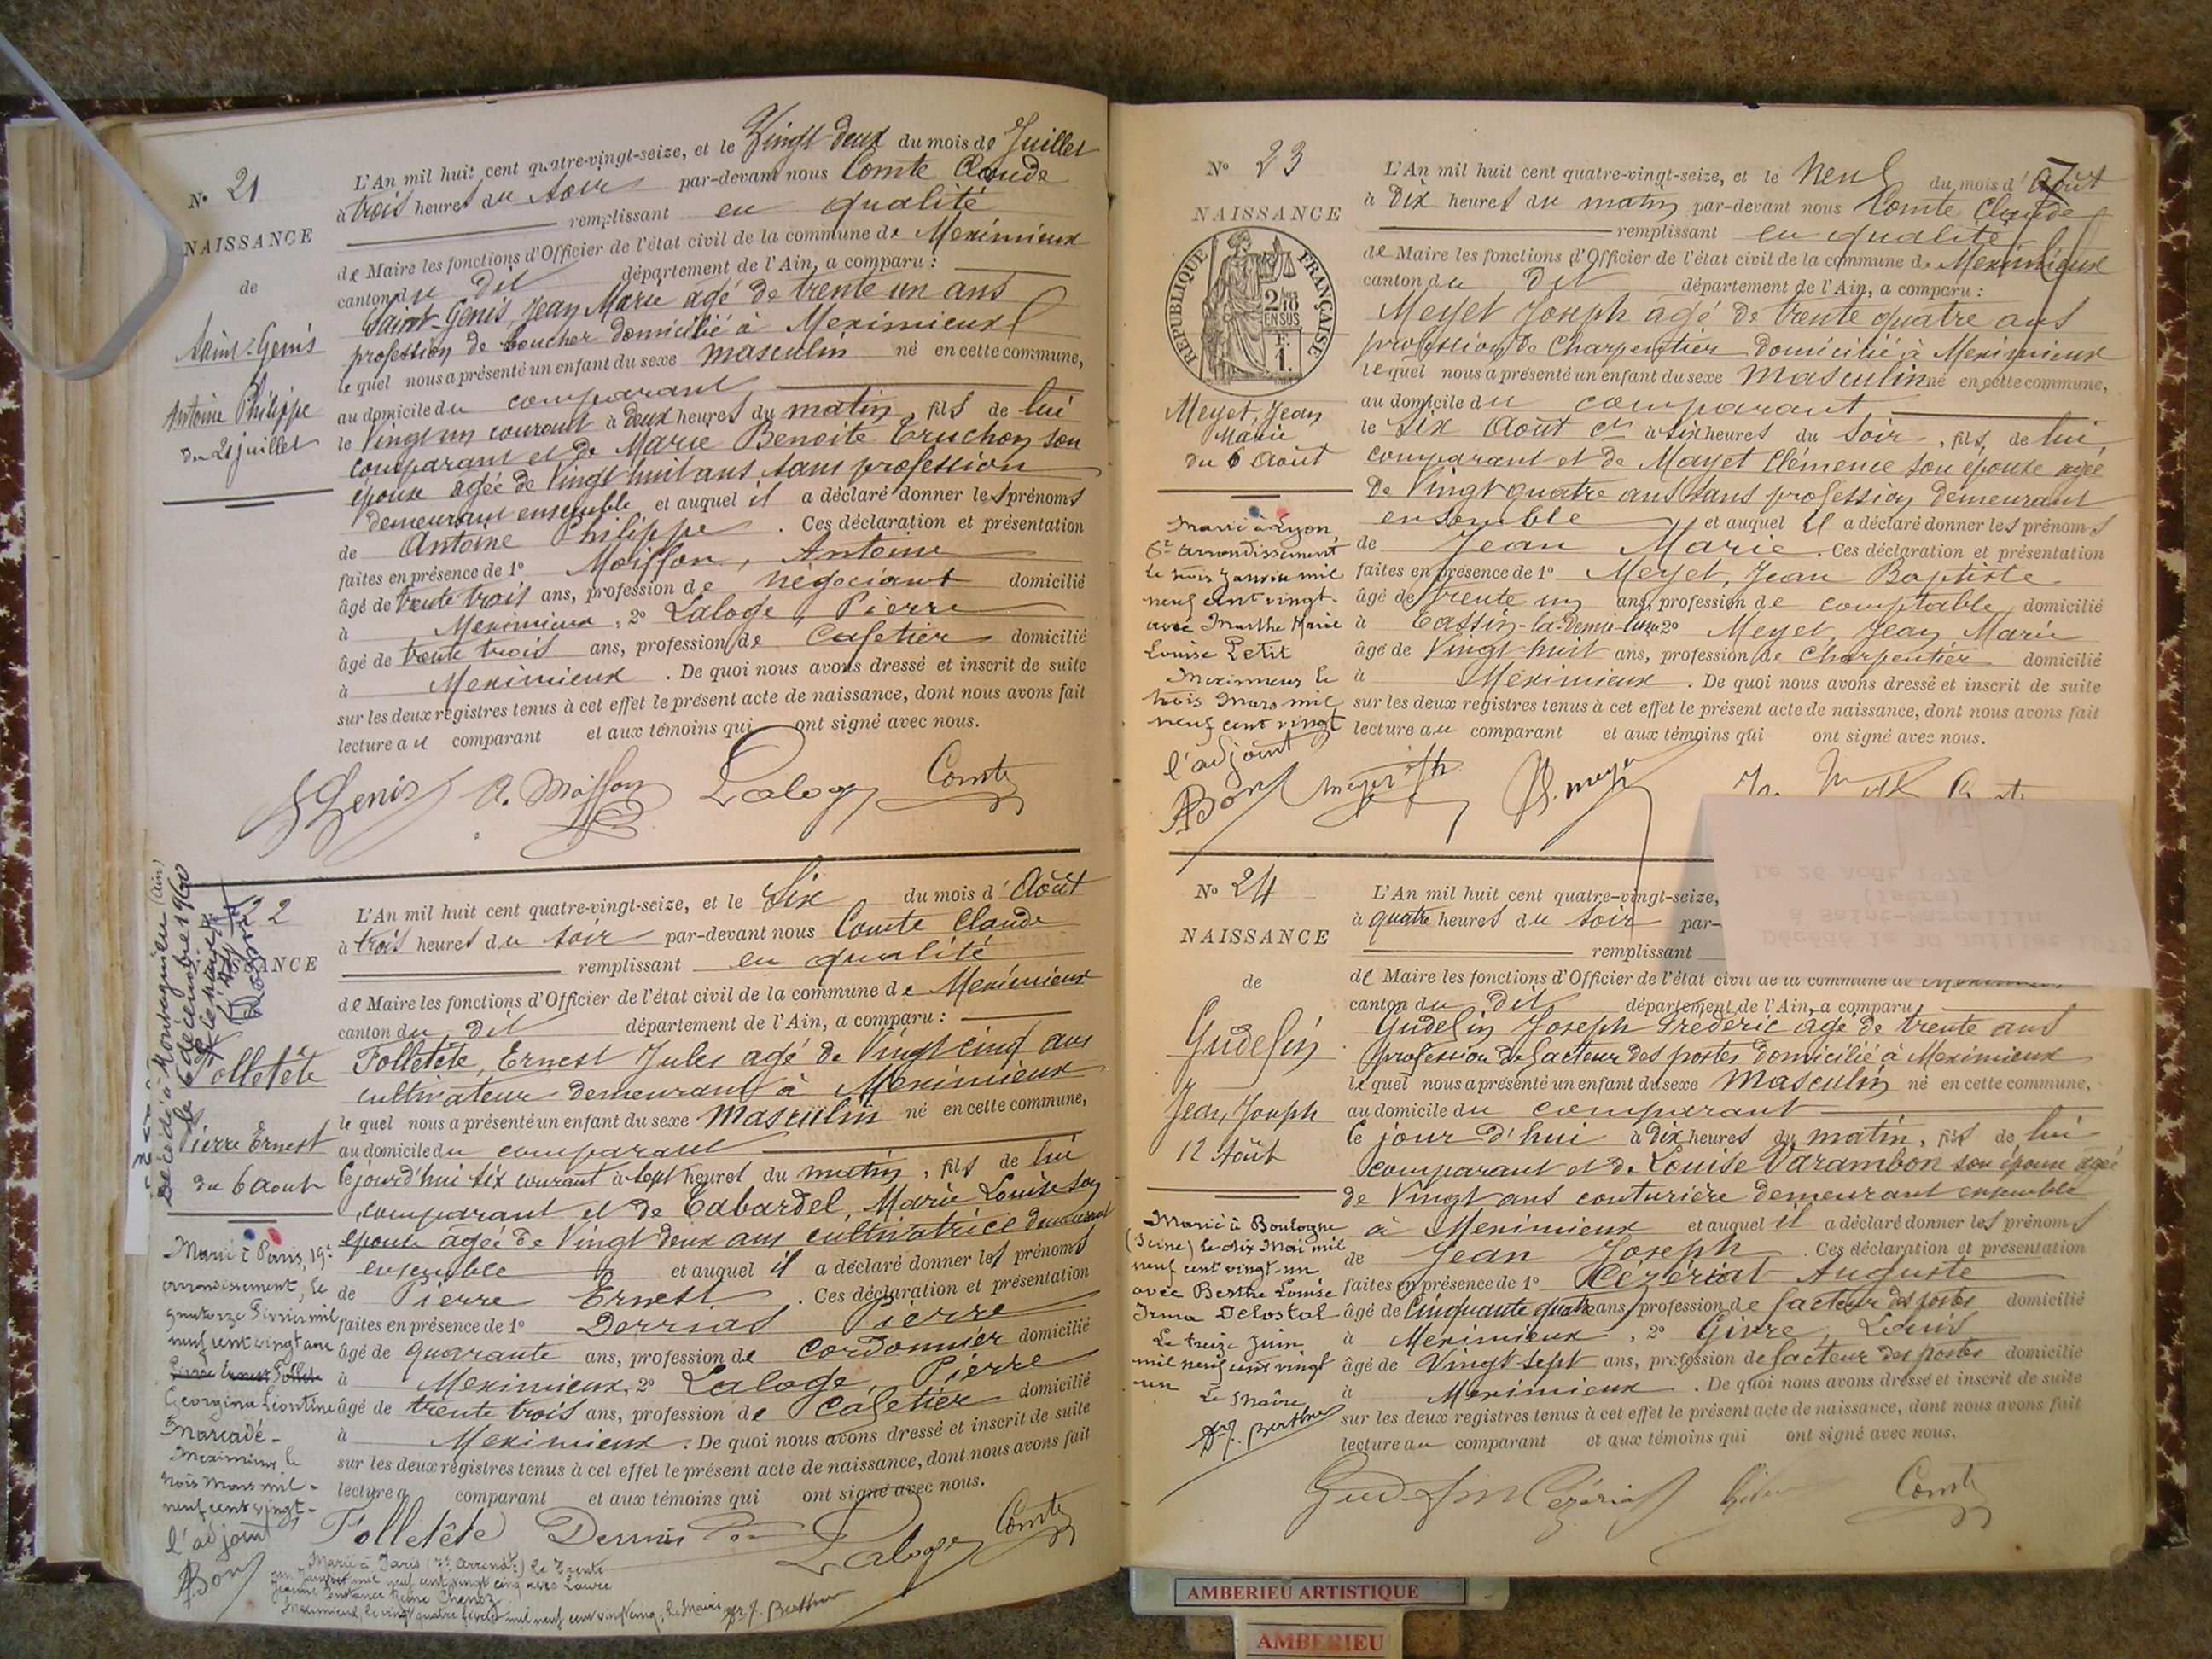 N° 21
NAISSANCE
de
Saint-Genis
Antoine Philippe
du 21 juillet
L'An mil huit cent quatre-vingt-seize, et le Vingt deux du mois de Juillet
à trois heures du soir par-devant nous Comte Claude
remplissant en qualité
de Maire les fonctions d'Officier de l'état civil de la commune de Meximieux
canton du dit département de l'Ain, a comparu :
Saint-Genis, Jean Marie agé de trente un ans
profession de boucher domicilié à Meximieux
lequel nous a présenté un enfant du sexe masculin né en cette commune,
au domicile du comparant
le Vingt un courant à deux heures du matin, fils de lui
comparant et de Marie Benoite Truchon son
épouse agée de Vingt huit ans sans profession
demeurant ensemble et auquel il a déclaré donner les prénoms
de Antoine Philippe. Ces déclaration et présentation
faites en présence de 1° Moiffon, Antoine
âgé de trente trois ans, profession de négociant domicilié
à Meximieux, 2° Laloge, Pierre
âgé de trente trois ans, profession de Cafetier domicilié
à Meximieux. De quoi nous avons dressé et inscrit de suite
sur les deux registres tenus à cet effet le présent acte de naissance, dont nous avons fait
lecture au comparant et aux témoins qui ont signé avec nous.
Genis A. Moiffon Laloge Comte
22
Décédé à Montagnieu (Ain)
le 6 décembre 1960
Folletête
Pierre Ernest
du 6 Aout
L'An mil huit cent quatre-vingt-seize, et le Six du mois d'Août
à trois heures du soir par-devant nous Comte Claude
remplissant en qualité
de Maire les fonctions d'Officier de l'état civil de la commune de Meximieux
canton du dit département de l'Ain, a comparu :
Folletête, Ernest Jules agé de Vingt cinq ans
cultivateur demeurant à Meximieux
lequel nous a présenté un enfant du sexe Masculin né en cette commune,
au domicile du comparant
Cejourd'hui six courant à sept heures du matin, fils de lui
comparant et de Tabardel, Marie Louise son
épouse agée de Vingt deux ans cultivatrice demeurant
ensemble et auquel il a déclaré donner les prénoms
de Pierre Ernest. Ces déclaration et présentation
faites en présence de 1° Derrias Pierre
âgé de quarante ans, profession de cordonnier domicilié
à Meximieux, 2° Laloge, Pierre
âgé de trente trois ans, profession de Cafetier domicilié
à Meximieux. De quoi nous avons dressé et inscrit de suite
sur les deux registres tenus à cet effet le présent acte de naissance, dont nous avons fait
lecture a comparant et aux témoins qui ont signé avec nous.
Folletête Laloge Comte
Marié à Paris, 19e
arrondissement, le
quatorze Février mil
neuf cent vingt avec
Georgina Léontine
Marcadé.
Meximieux le
trois Mars mil
neuf cent vingt
l'adjoint
Marié à Paris le Trente
un Janvier mil neuf cent vingt cinq avec Laure
Jeanne Constance
Meximieux, le vingt quatre février mil neuf cent vingt cinq, le Maire
N° 23
NAISSANCE
RÉPUBLIQUE FRANÇAISE
2/10 EN SUS
F. 1.
Meyet, Jean
Marie
du 6 Août
L'An mil huit cent quatre-vingt-seize, et le Neuf du mois d'Août
à Dix heures du matin par-devant nous Comte Claude
remplissant en qualité
de Maire les fonctions d'Officier de l'état civil de la commune de Meximieux
canton du dit département de l'Ain, a comparu :
Meyet Joseph agé de trente quatre ans
profession de Charpentier domicilié à Meximieux
lequel nous a présenté un enfant du sexe Masculin né en cette commune,
au domicile du comparant,
le Six Août ct à six heures du soir, fils de lui
comparant et de Mayet Clémence son épouse agée
de Vingt quatre ans sans profession demeurant
ensemble et auquel il a déclaré donner les prénoms
de Jean Marie. Ces déclaration et présentation
faites en présence de 1° Meyet, Jean Baptiste
âgé de trente un ans, profession de comptable, domicilié
à Tassin-la-Demi-lune 2° Meyet, Jean Marie
âgé de Vingt huit ans, profession de Charpentier domicilié
à Meximieux. De quoi nous avons dressé et inscrit de suite
sur les deux registres tenus à cet effet le présent acte de naissance, dont nous avons fait
lecture au comparant et aux témoins qui ont signé avec nous.
Marié à Lyon,
6e arrondissement
le trois Janvier mil
neuf cent vingt
avec Marthe Marie
Louise Petit
Meximieux le
trois Mars mil
neuf cent vingt
l'adjoint
N° 24
NAISSANCE
de
Gudefin
Jean, Joseph
12 Août
L'An mil huit cent quatre-vingt-seize,
à quatre heures du soir par-
remplissant
de Maire les fonctions d'Officier de l'état civil de la commune de Meximieux
canton du dit département de l'Ain, a comparu,
Gudefin Joseph Frédéric agé de trente ans
profession de facteur des postes domicilié à Meximieux
lequel nous a présenté un enfant du sexe Masculin né en cette commune,
au domicile du comparant
le jour d'hui à dix heures du matin, fils de lui
comparant et de Louise Varambon son épouse agée
de Vingt ans couturière demeurant ensemble
à Meximieux et auquel il a déclaré donner les prénoms
de Jean Joseph. Ces déclaration et présentation
faites en présence de 1° Cézériat Auguste
âgé de Cinquante quatre ans, profession de facteur des postes domicilié
à Meximieux, 2° Givre, Louis
âgé de Vingt sept ans, profession de facteur des postes domicilié
à Meximieux. De quoi nous avons dressé et inscrit de suite
sur les deux registres tenus à cet effet le présent acte de naissance, dont nous avons fait
lecture au comparant et aux témoins qui ont signé avec nous.
Gudefin Cézériat Comte
Marié à Boulogne
(Seine) le dix Mai mil
neuf cent vingt-un
avec Berthe Louise
Irma Delostal
Le treize Juin
mil neuf cent vingt
un
Le Maire
AMBERIEU ARTISTIQUE
AMBERIEU